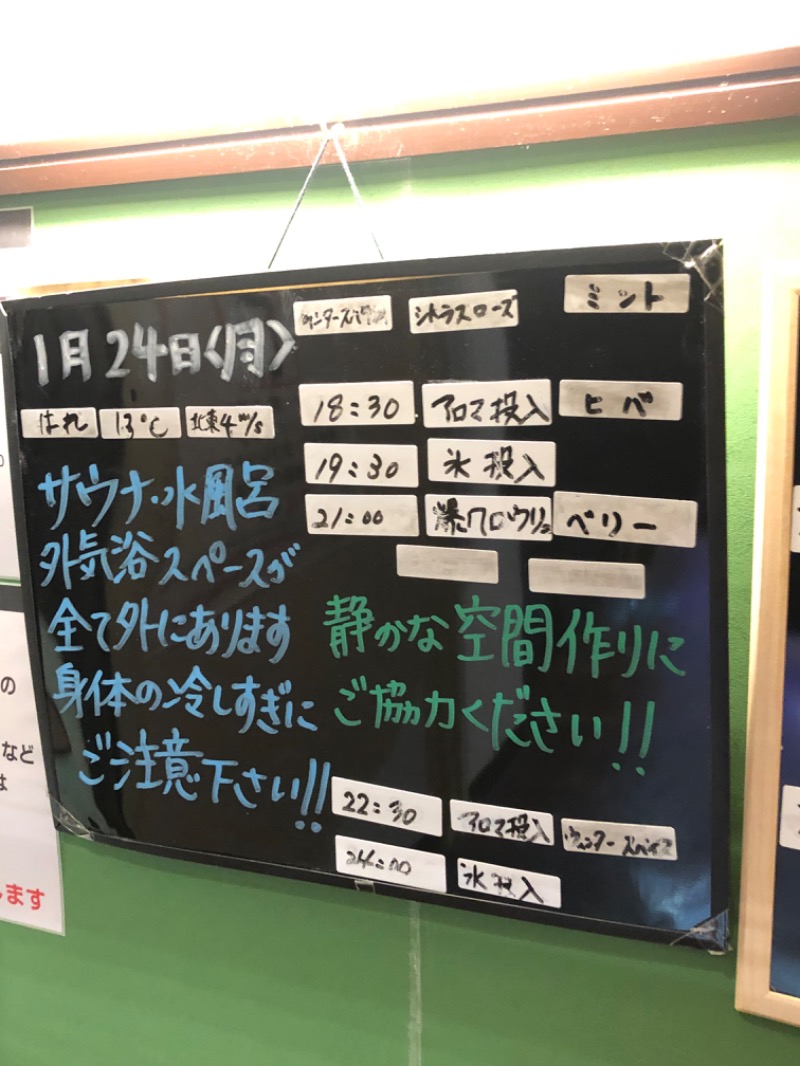 1月24日〈月〉
はれ 13℃ 北東4m/s
サウナ・水風呂
外気浴スペースが
全て外にあります
身体の冷しすぎに
ご注意下さい!!
シトラスローズ ミント
18:30 アロマ投入 ヒバ
19:30 氷投入
21:00 爆風ロウリュ ベリー
静かな空間作りに
ご協力ください!!
22:30 アロマ投入 ウィンタースパイス
24:00 氷投入
の
など
は
します